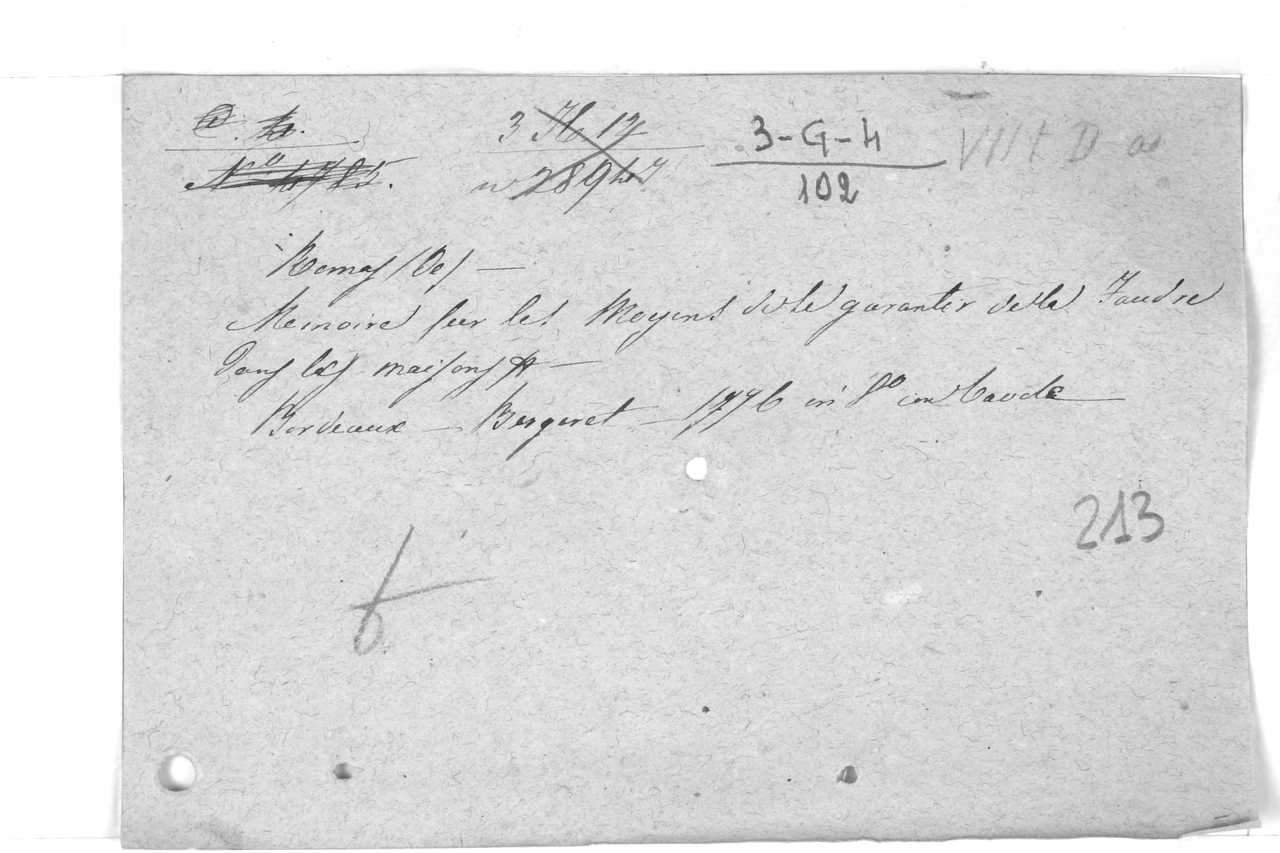 3 H 17
3-G-4
102
VIII D a
Nº 4785.
n 28947
Romas (De) —
Memoire sur les Moyens de se garantir de la Foudre
Dans les maisons —
Bordeaux — Bergeret — 1776 in 8º
213